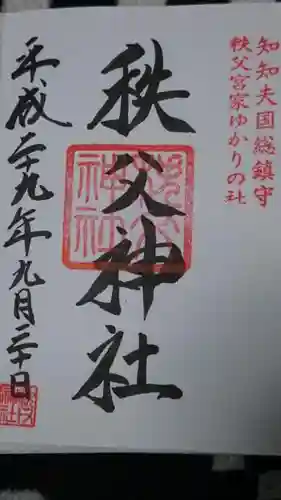 知知夫国総鎮守
秩父宮家ゆかりの社
秩父神社
平成二十九年九月三十日